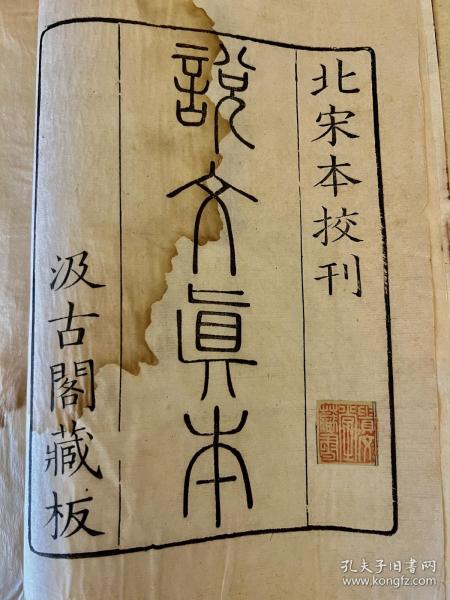 北宋本挍刊
說文真本
汲古閣藏板
孔夫子旧书网
www.kongfz.com